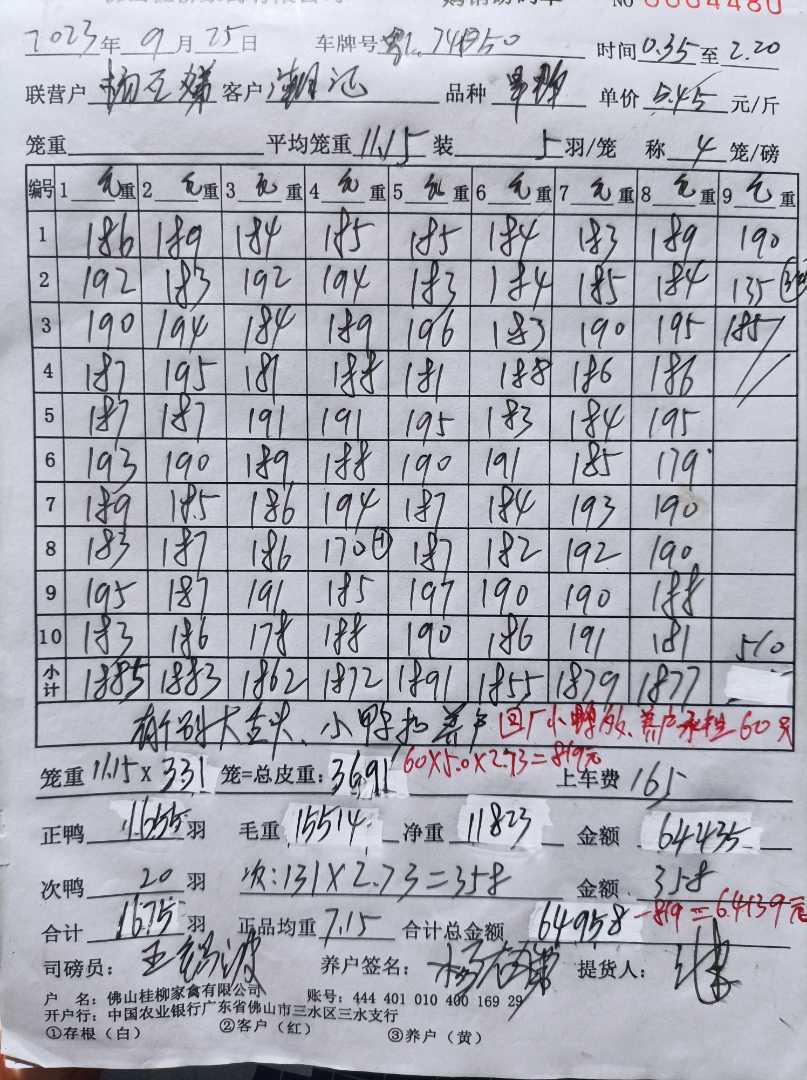 No 0004480
2023年9月25日 车牌号 74B50 时间0.35至2.20
联营户 客户 品种 单价5.45元/斤
笼重 平均笼重11.15 装5羽/笼 称4笼/磅
编号 1毛重 2毛重 3毛重 4毛重 5毛重 6毛重 7毛重 8毛重 9毛重
1 186 189 184 185 185 184 183 189 190
2 192 183 192 194 183 184 185 184 135
3 190 194 184 189 196 183 190 195 185
4 187 195 181 188 181 188 186 186
5 187 187 191 191 195 183 184 195
6 193 190 189 188 190 191 185 179
7 189 185 186 194 187 184 193 190
8 183 187 186 170① 187 182 192 190
9 195 187 191 185 197 190 190 188
10 183 186 178 188 190 186 191 181 510
小计 1885 1883 1862 1872 1891 1855 1879 1877
小鸭 养户 回厂小鸭 养户承担60只
笼重11.15×331笼=总皮重:3691 60×5.0×2.73=819元 上车费165
正鸭1655羽 毛重15514 净重11823 金额64435
次鸭20羽 次:131×2.73=358 金额358
合计1675羽 正品均重7.15 合计总金额64958-819=64139元
司磅员: 养户签名: 提货人:
户 名:佛山桂柳家禽有限公司 账号:444 401 010 400 169 29
开户行:中国农业银行广东省佛山市三水区三水支行
①存根(白) ②客户(红) ③养户(黄)